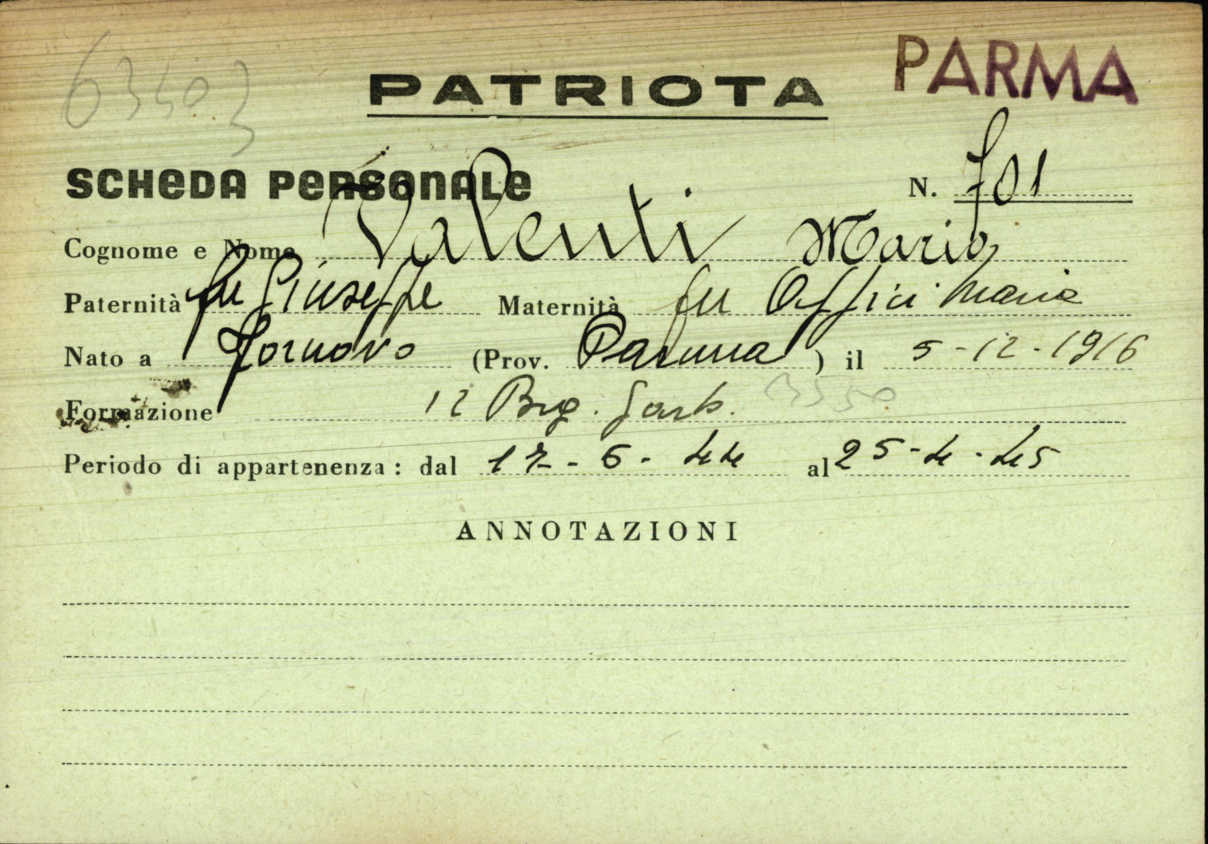 63403
PATRIOTA
PARMA
SCHEDA PERSONALE
N. 701
Cognome e Nome Valenti Mario
Paternità fu Giuseppe Maternità fu Offici Maria
Nato a Fornovo (Prov. Parma) il 5-12-1916
Formazione 12 Brg. Garb. 3550
Periodo di appartenenza: dal 17-6-44 al 25-4-45
ANNOTAZIONI